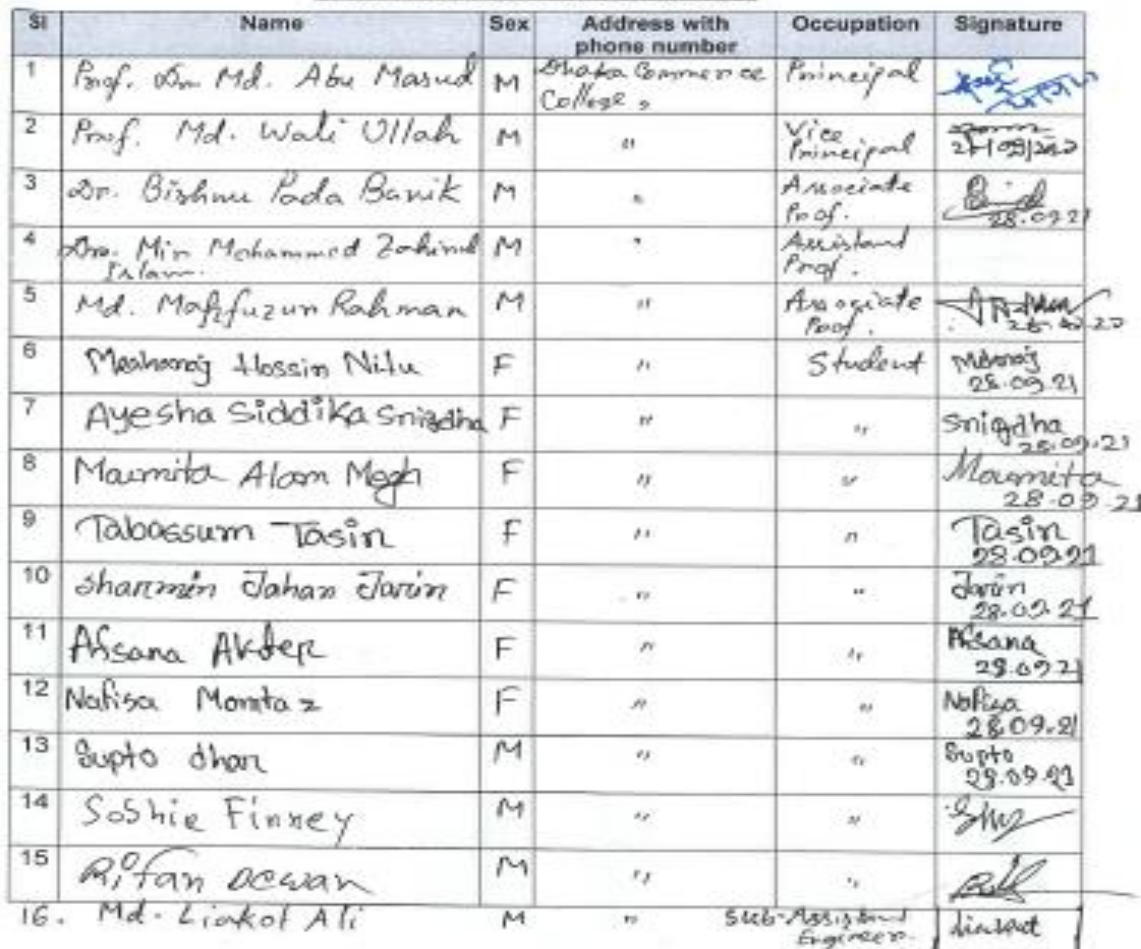 Sl Name Sex Address with phone number Occupation Signature
1 Prof. Dr. Md. Abu Masud M Dhaka Commerce College, Principal
2 Prof. Md. Wali Ullah M " Vice Principal
3 Dr. Bishnu Pada Banik M " Associate Prof. 28.09.21
4 Mir Mohammed Zahirul Islam. M " Assistant Prof.
5 Md. Mahfuzur Rahman M " Associate Prof.
6 Meahoraj Hossin Nitu F " Student 28.09.21
7 Ayesha Siddika Snigdha F " " Snigdha 28.09.21
8 Maumita Alam Megh F " " Maumita 28.09.21
9 Tabassum Tasin F " " Tasin 28.09.21
10 Sharmin Jahan Jarin F " " Jarin 28.09.21
11 Afsana Akter F " " Afsana 28.09.21
12 Nafisa Momtaz F " " Nafisa 28.09.21
13 Supto dhar M " " Supto 28.09.21
14 Soshie Finney M " "
15 Rifan Dewan M " "
16. Md. Liakot Ali M " Sub-Assistant Engineer.